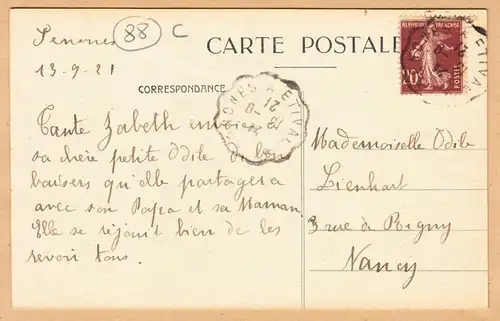 Senones
88 C
13-9-21
CARTE POSTALE
RÉPUBLIQUE FRANÇAISE
20c
POSTES
CORRESPONDANCE
SENONES A ETIVAL
13 - 9
21
Tante Zabeth envoie à
sa chère petite Odile de bons
baisers qu'elle partagera
avec son Papa et sa Maman.
Elle se réjouit bien de les
revoir tous.
Mademoiselle Odile
Lienhart
3 rue de Rigny
Nancy